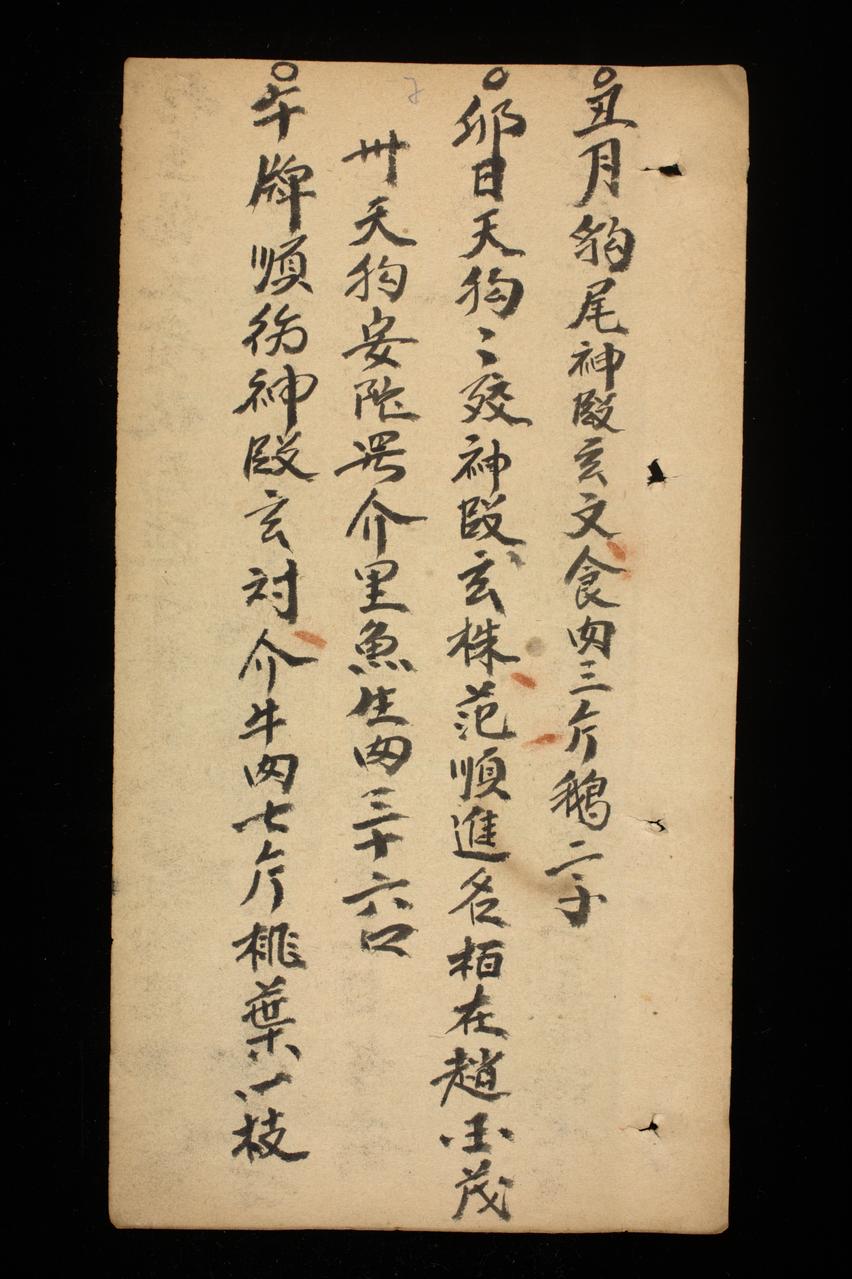 丑月豹尾神殿玄文食肉三斤鵝二子
卯日天狗〻殺神殿玄株范順進名栢在趙玉茂
卅天狗安陀哭介里魚生肉三十六口
午牌順伤神殿玄对介牛肉七斤桃葉一枝